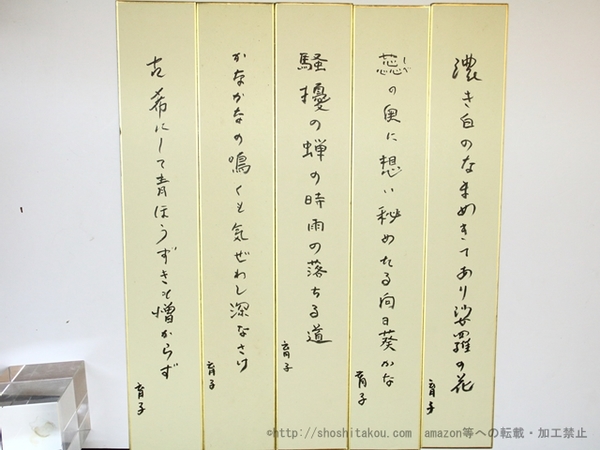 濃き白のなまめきてあり沙羅の花
育子
蕊の奥に想い秘めたる向日葵かな
育子
騒擾の蝉の時雨の落ちる道
育子
かなかなの鳴くも気ぜわし深なさけ
育子
古希にして青ほうずきも憎からず
育子
©http://shoshitakou.com amazon等への転載・加工禁止